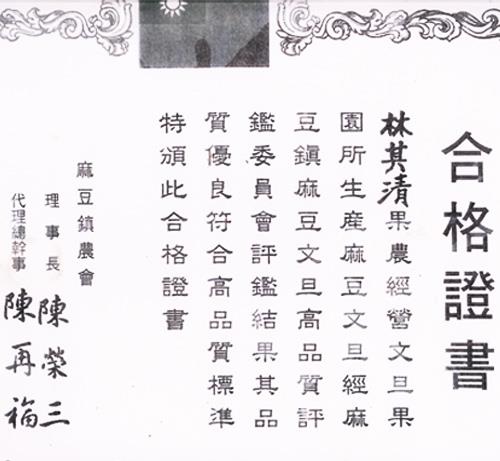 合格證書
林其清果農經營文旦果
園所生産麻豆文旦經麻
豆鎮麻豆文旦高品質評
鑑委員會評鑑結果其品
質優良符合高品質標準
特頒此合格證書
麻豆鎮農會
理事長 陳榮三
代理總幹事 陳再福